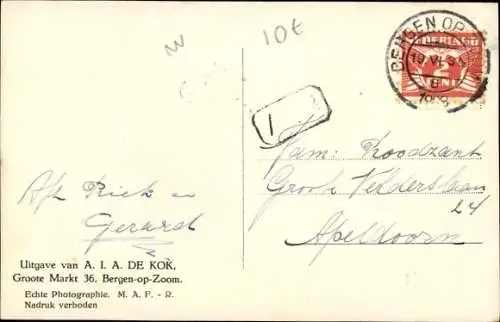 10€
BERGEN OP
NEDERLAND
1
Fam: Roodzant
Groote
24
Apeldoorn
Afz Riek en
Gerard
Uitgave van A. I. A. DE KOK,
Groote Markt 36, Bergen-op-Zoom.
Echte Photographie. M. A. F. - R.
Nadruk verboden